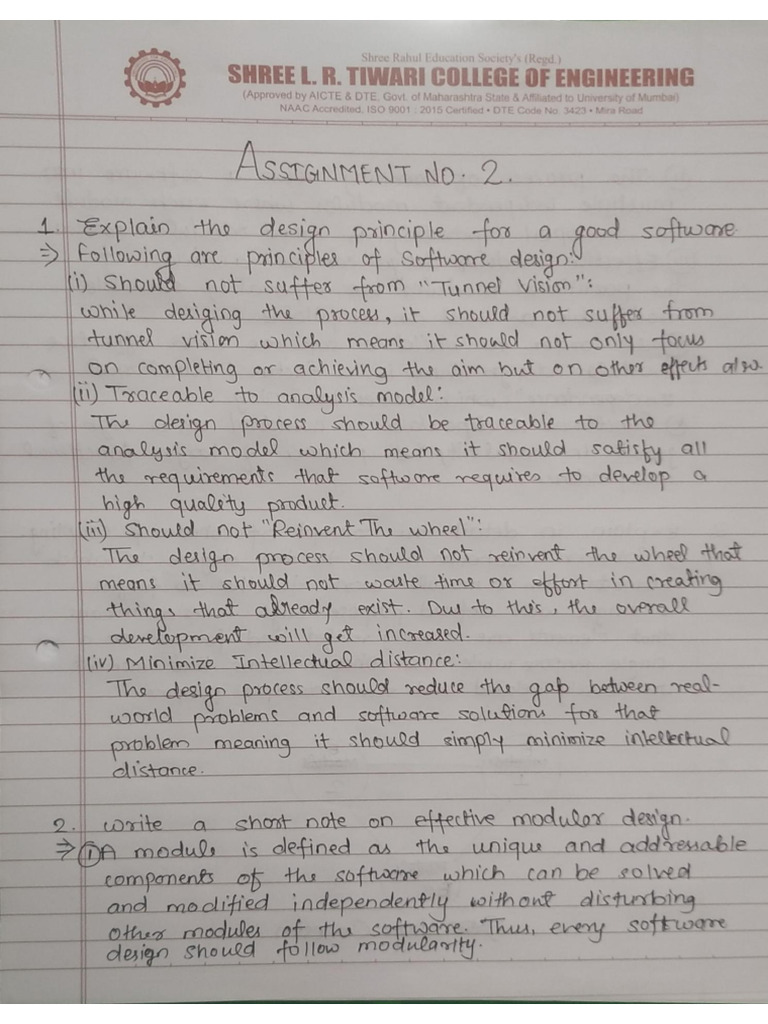 Shree Rahul Education Society's (Regd.)
SHREE L. R. TIWARI COLLEGE OF ENGINEERING
(Approved by AICTE & DTE, Govt. of Maharashtra State & Affiliated to University of Mumbai)
NAAC Accredited, ISO 9001 : 2015 Certified • DTE Code No. 3423 • Mira Road
ASSIGNMENT NO. 2.
1. Explain the design principle for a good software
⇒ Following are principles of software design:
(i) Should not suffer from "Tunnel Vision":
while desiging the process, it should not suffer from
tunnel vision which means it should not only focus
on completing or achieving the aim but on other effects also.
(ii) Traceable to analysis model:
The design process should be traceable to the
analysis model which means it should satisfy all
the requirements that software requires to develop a
high quality product.
(iii) Should not "Reinvent The wheel":
The design process should not reinvent the wheel that
means it should not waste time or effort in creating
things that already exist. Due to this, the overall
development will get increased.
(iv) Minimize Intellectual distance:
The design process should reduce the gap between real-
world problems and software solutions for that
problem meaning it should simply minimize intellectual
distance.
2. Write a short note on effective modular design.
⇒ (1) A module is defined as the unique and addressable
components of the software which can be solved
and modified independently without disturbing
other modules of the software. Thus, every software
design should follow modularity.